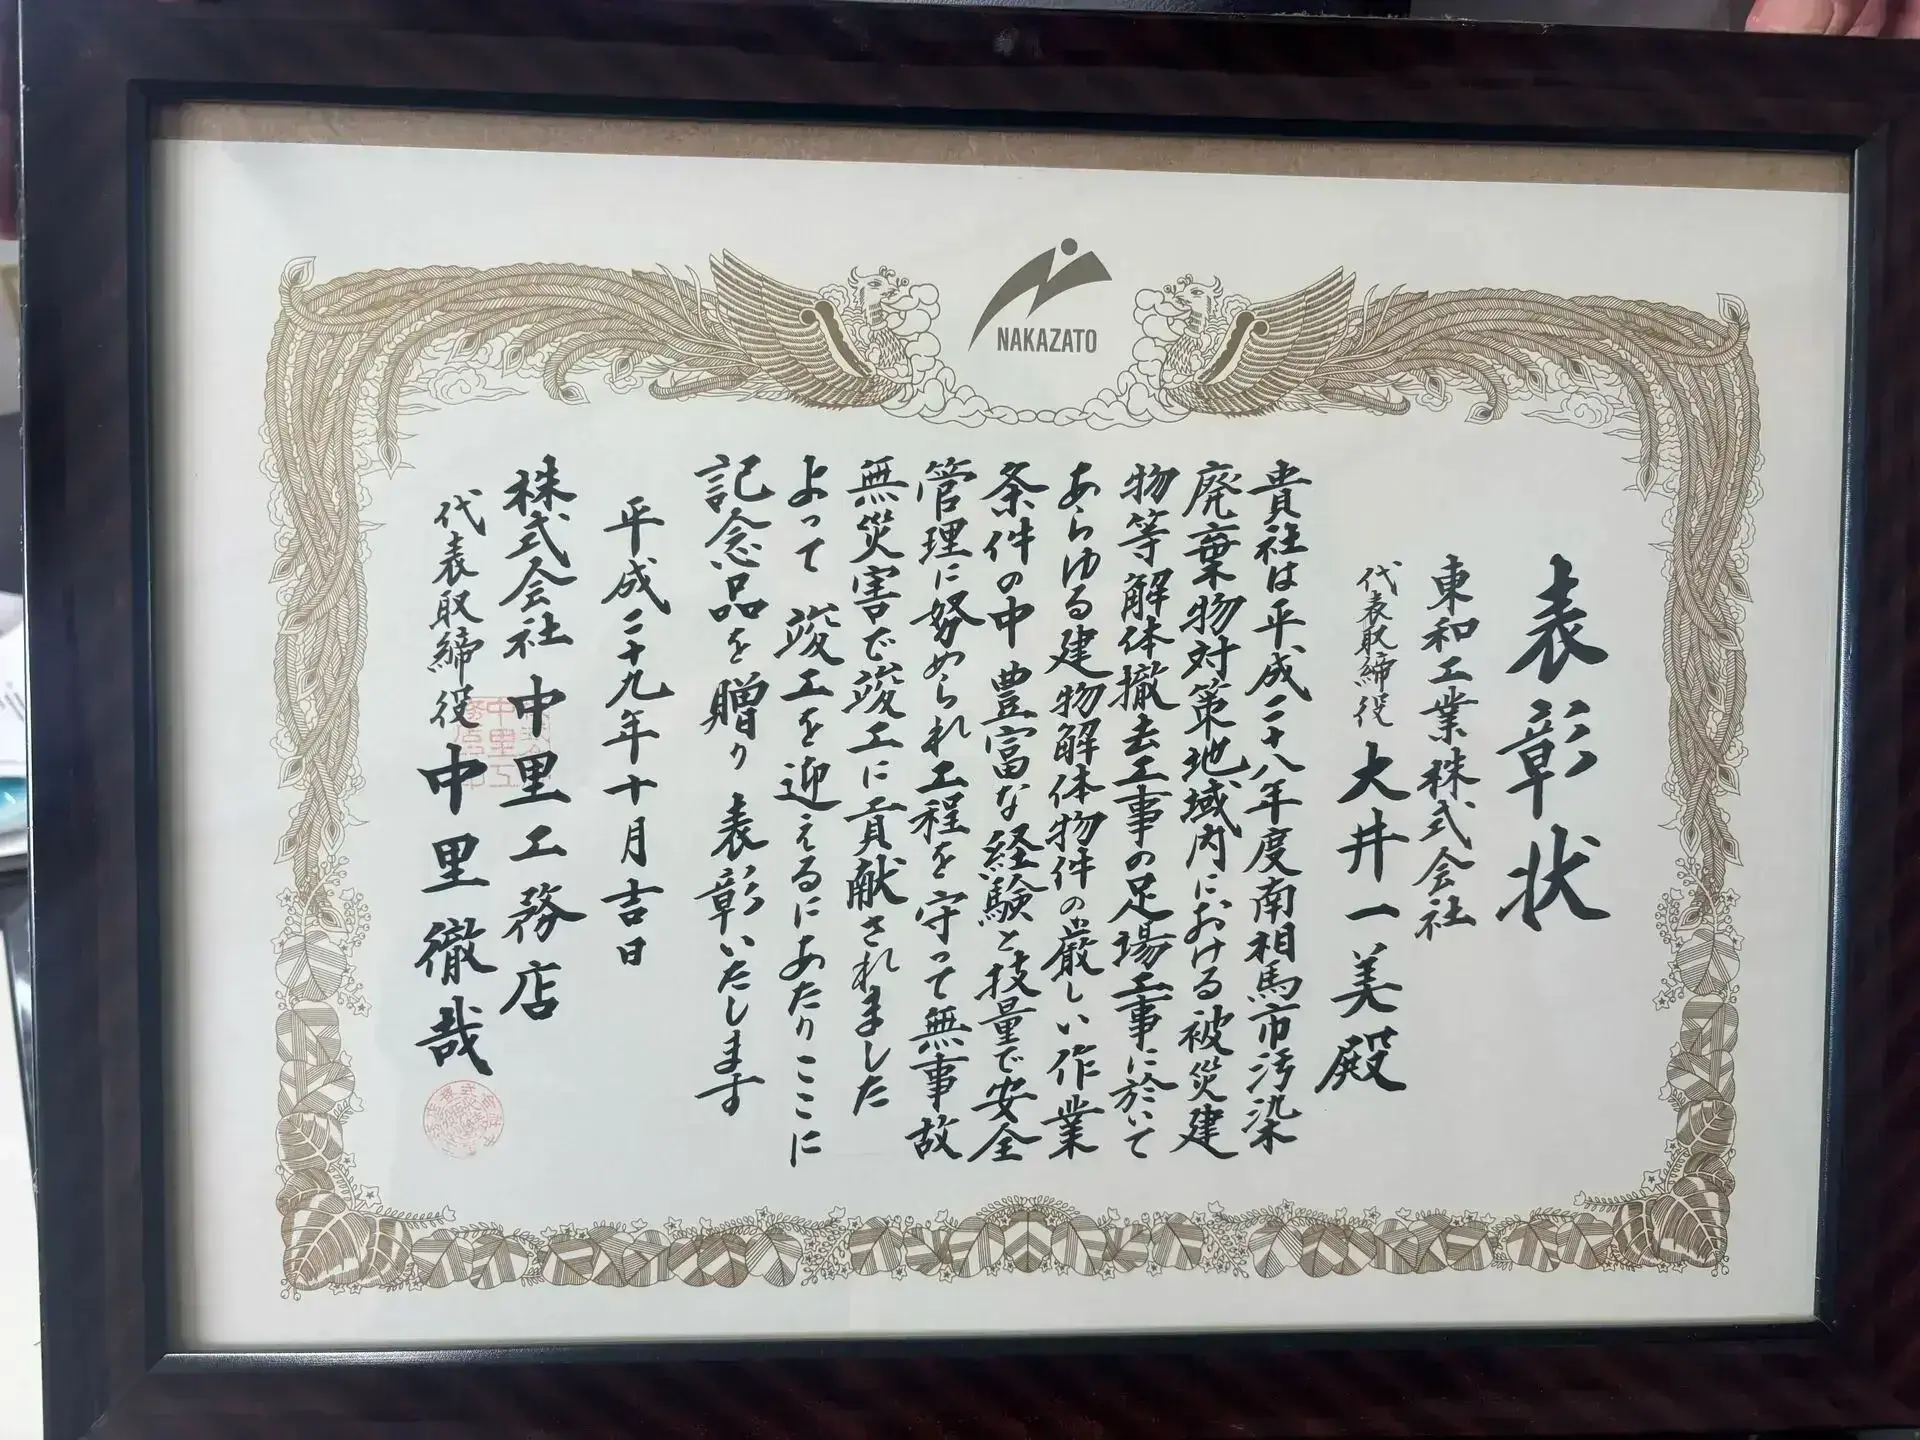 NAKAZATO
表彰状
東和工業株式会社
代表取締役 大井一美殿
貴社は平成二十八年度南相馬市汚染
廃棄物対策地域内における被災建
物等解体撤去工事の足場工事に於いて
あらゆる建物解体物件の厳しい作業
条件の中 豊富な経験と技量で安全
管理に努められ工程を守って無事故
無災害で竣工に貢献されました
よって 竣工を迎えるにあたりここに
記念品を贈り 表彰いたします
平成二十九年十月吉日
株式会社中里工務店
代表取締役 中里徹哉